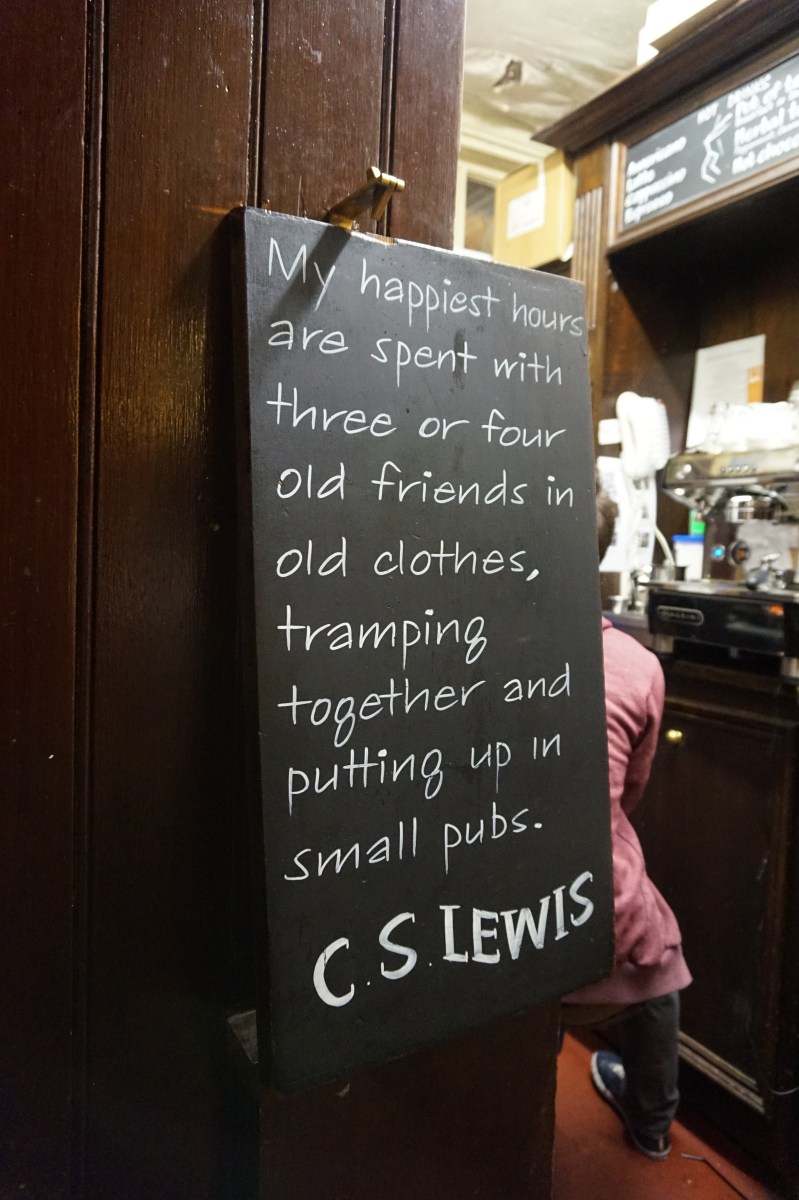 My happiest hours
are spent with
three or four
old friends in
old clothes,
tramping
together and
putting up in
small pubs.
C.S. LEWIS
Americano
Latte
Cappuccino
Espresso
Herbal
Hot choco